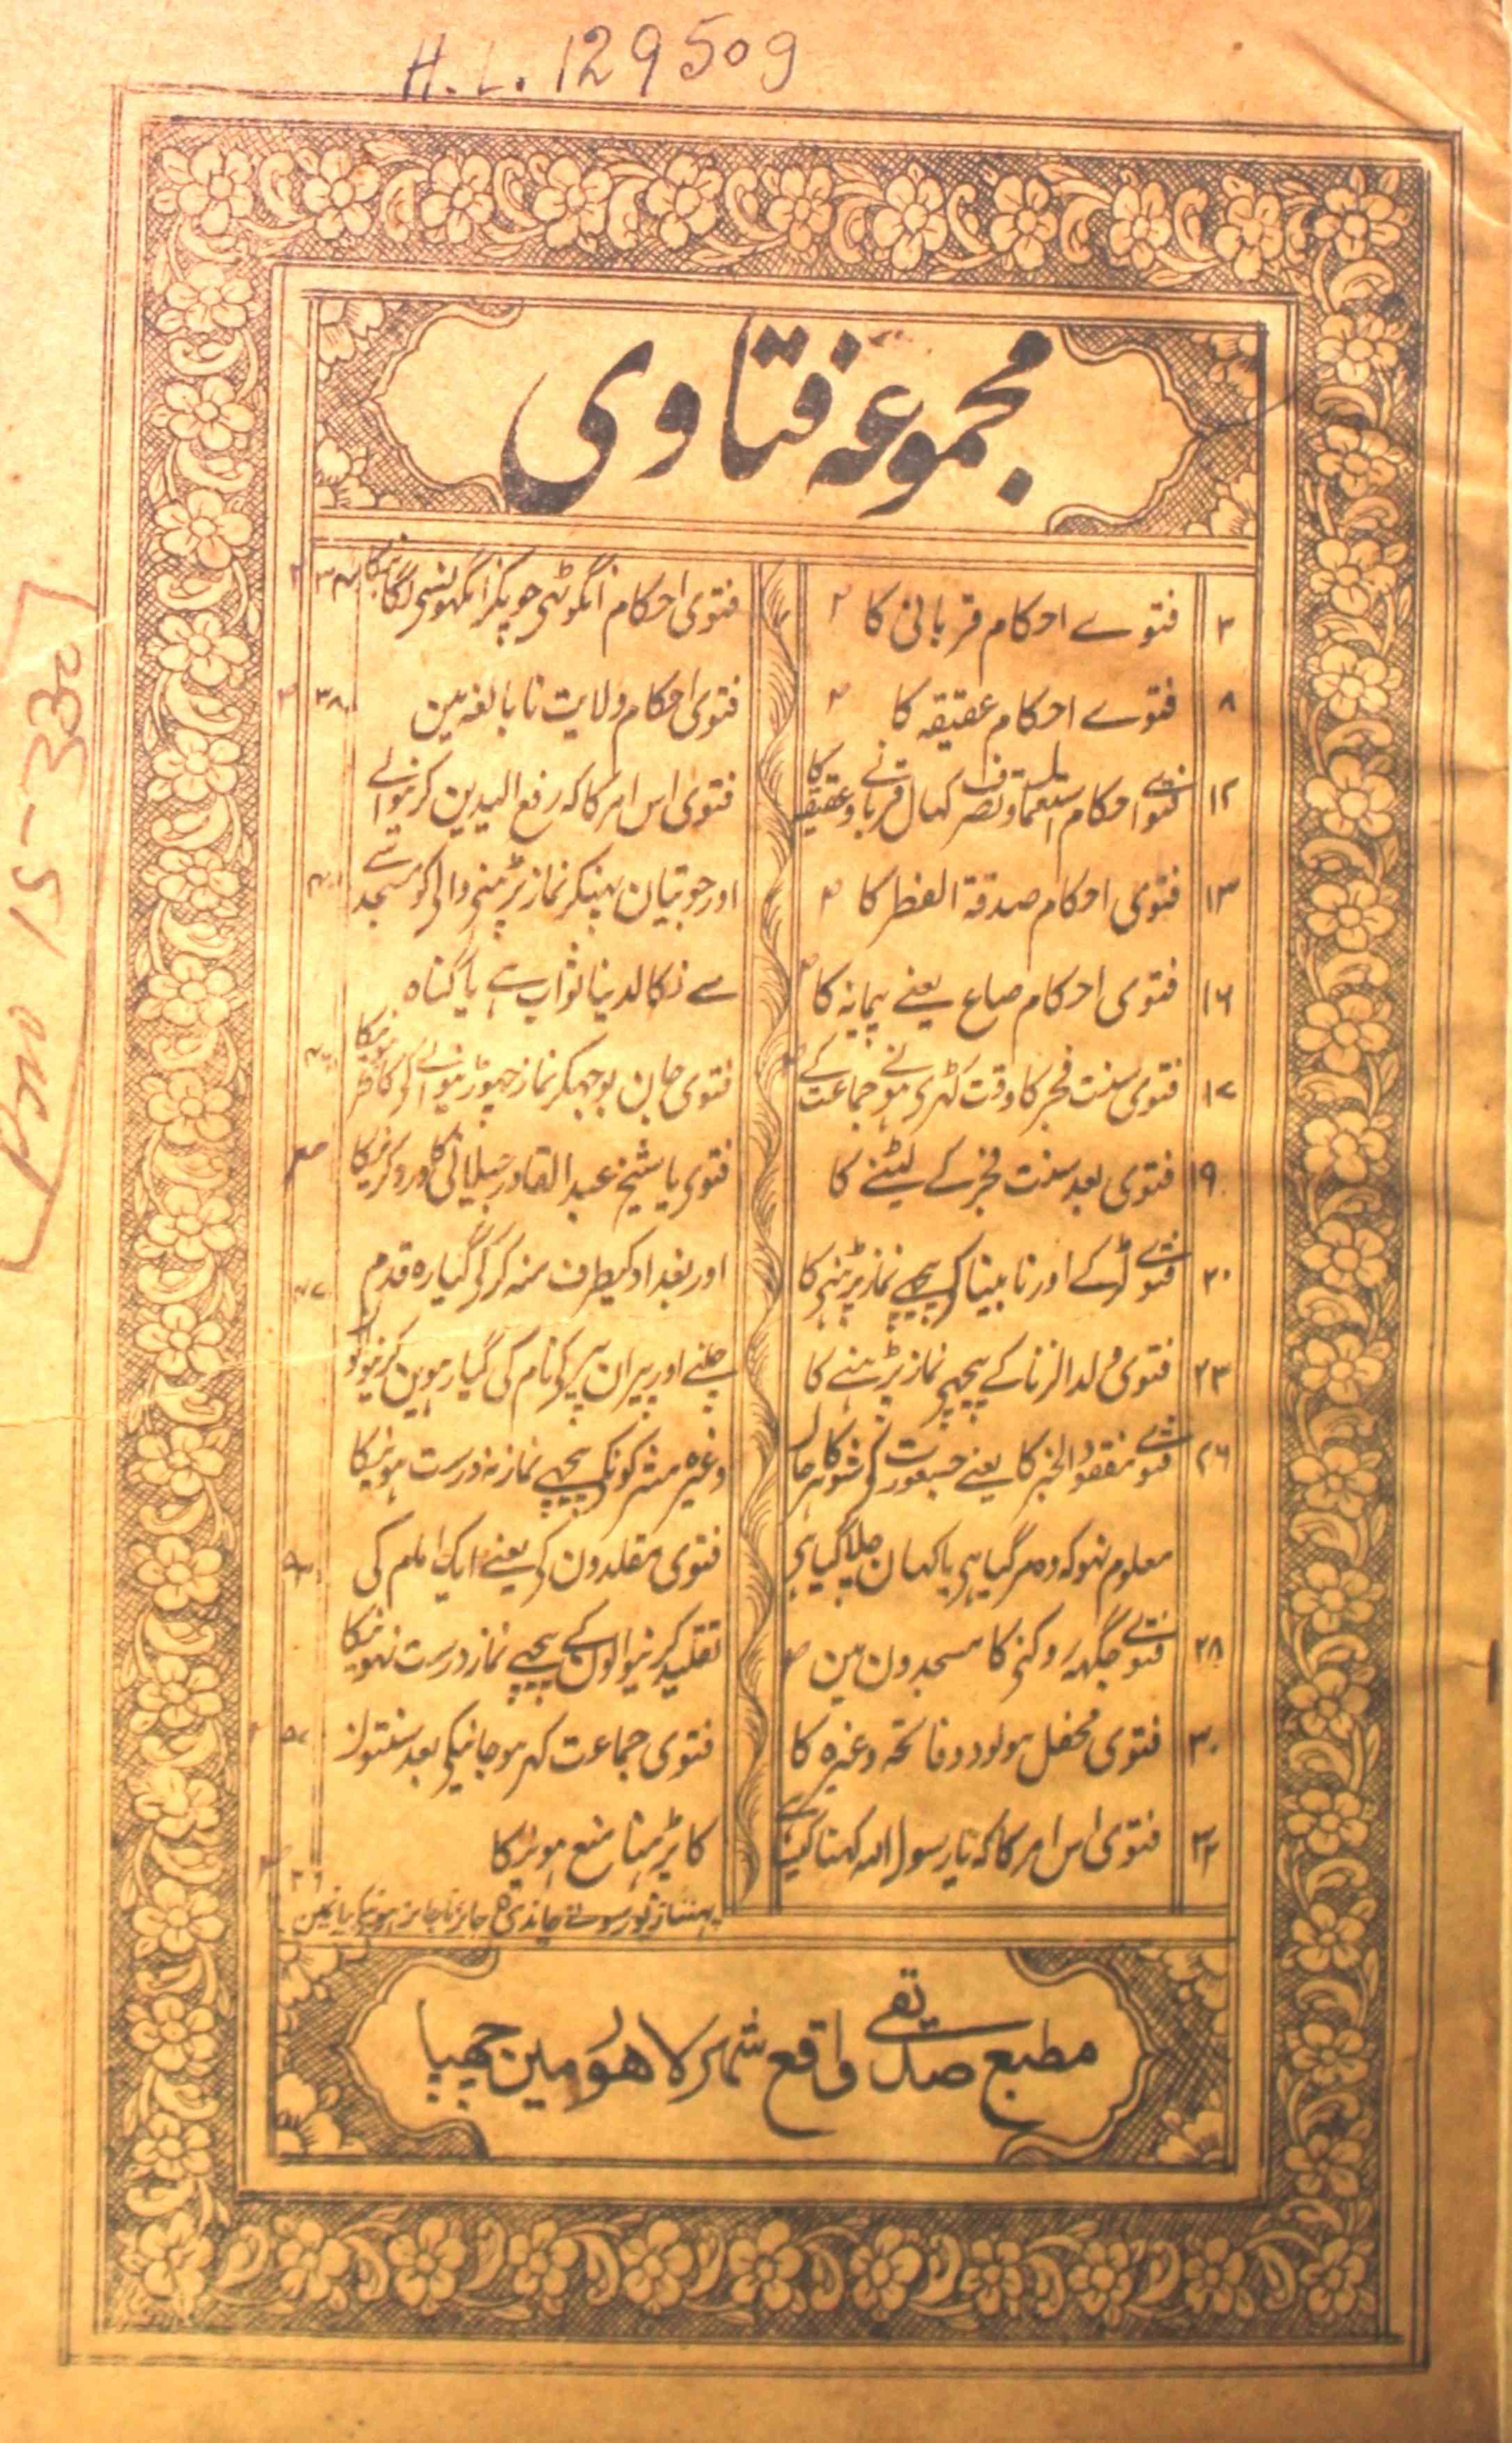 H.L. 129509
مجموعہ فتاوی
۲ فتوے احکام قربانی کا
۸ فتوے احکام عقیقہ کا
۱۲ فتوے احکام استعمال و تصرف کہال قربانی و عقیقہ کا
۱۳ فتوی احکام صدقۃ الفطر کا
۱۶ فتوی احکام صاع یعنے پیمانہ کا
۱۷ فتوی سنت فجر کا وقت کہڑی ہونے جماعت کے
۱۹ فتوی بعد سنت فجر کے لیٹنے کا
۲۰ فتوے لڑکے اور نابینا کی پیچہے نماز پڑہنی کا
۲۳ فتوی ولد الزنا کے پیچہے نماز پڑہنے کا
۲۶ فتوے مفقود الخبر کا یعنے جسعورت کی شوہر کا حال
معلوم نہو کہ وہ مر گیا ہی یا کہان چلا گیا ہی
۲۸ فتوے جگہہ روکنی کا مسجدون مین
۳۰ فتوی محفل مولود و فاتحہ وغیرہ کا
۳۲ فتوی اس امر کا کہ یا رسول اللہ کہنا کیسا ہے
فتوی احکام انگوٹہی چوم کر آنکہونسی لگانیکا
فتوی احکام ولایت نابالغہ مین ۳۸
فتوی اس امر کا کہ رفع الیدین کرنیوالے
اور جوتیان پہنکر نماز پڑہنی والی کو مسجد
سے نکالدینا ثواب ہے یا گناہ
فتوی جان بوجہکر نماز چہوڑنیوالے کی کافر ہونیکا
فتوی یا شیخ عبد القادر جیلانی کا ورد کرنیکا
اور بغداد کیطرف منہ کر کی گیارہ قدم
چلنے اور پیران پیر کی نام کی گیارہوین کرنیوالو
وغیرہ مشرکونکی پیچہے نماز نہ درست ہونیکا
فتوی مقلدون کی یعنے ایک امام کی
تقلید کرنیوالون کے پیچہے نماز درست نہونیکا
فتوی جماعت کہڑی ہو جانیکی بعد سنتونکا
کا پڑہنا منع ہونیکا
پہننا زیور سونے چاندی کا جائز ناجائز ہونیکا بیان مین
مطبع صدیقی واقع شہر لاہور مین چہپا